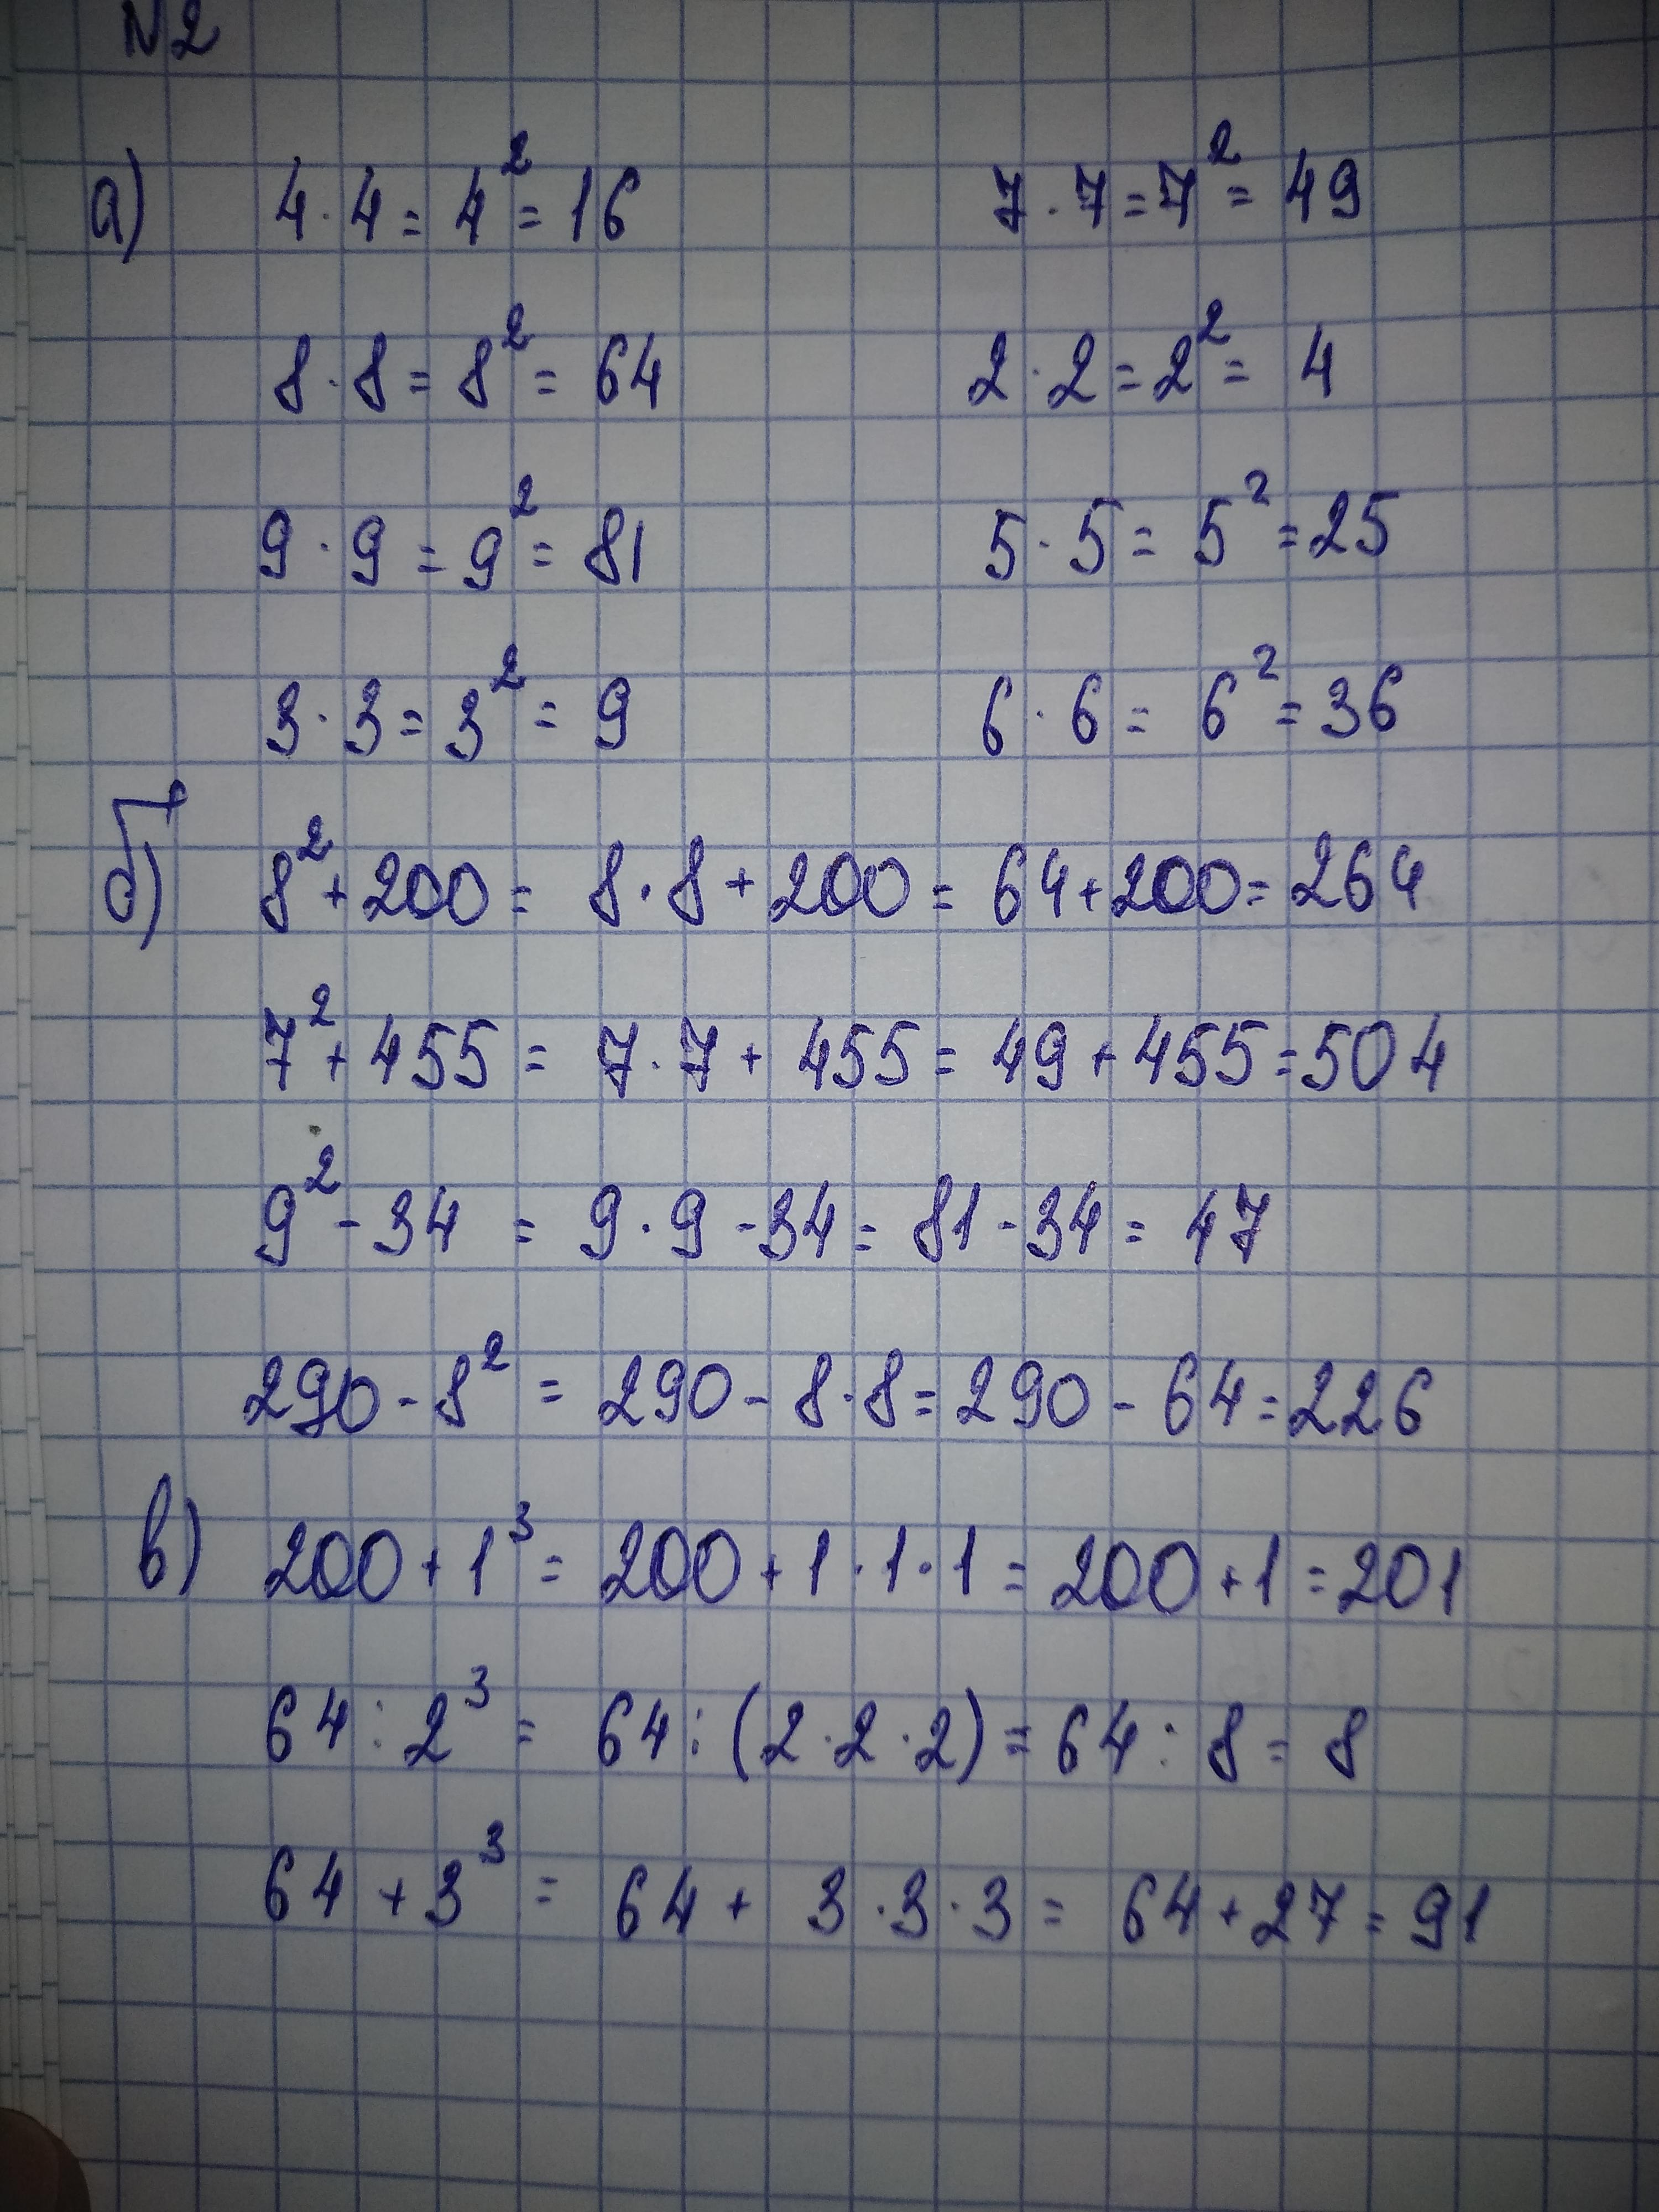 N2
а) 4·4=4²=16 7·7=7²=49
8·8=8²=64 2·2=2²=4
9·9=9²=81 5·5=5²=25
3·3=3²=9 6·6=6²=36
б) 8²+200=8·8+200=64+200=264
7²+455=7·7+455=49+455=504
9²-34=9·9-34=81-34=47
290-8²=290-8·8=290-64=226
в) 200+1³=200+1·1·1=200+1=201
64:2³=64:(2·2·2)=64:8=8
64+3³=64+3·3·3=64+27=91